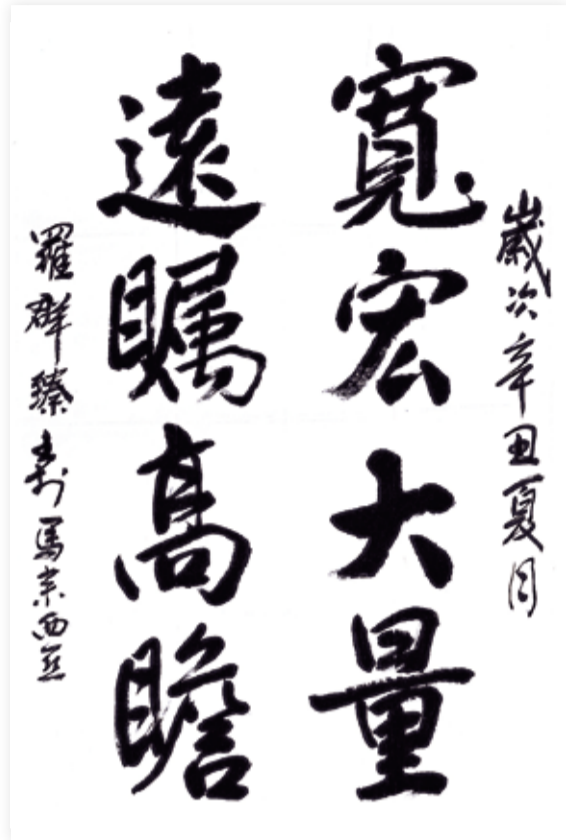 歲次辛丑夏月
寬宏大量
遠瞩高瞻
羅群臻馬來西亞